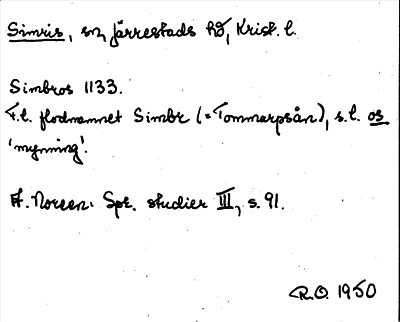 Simris, sn, Järrestads hd, Krist. l.
Simbros 1133.
F.l. flodnamnet Simbr (=Tommarpsån), s.l. os
'mynning'.
A. Noreen: Spr. studier III, s. 91.
R.O. 1950